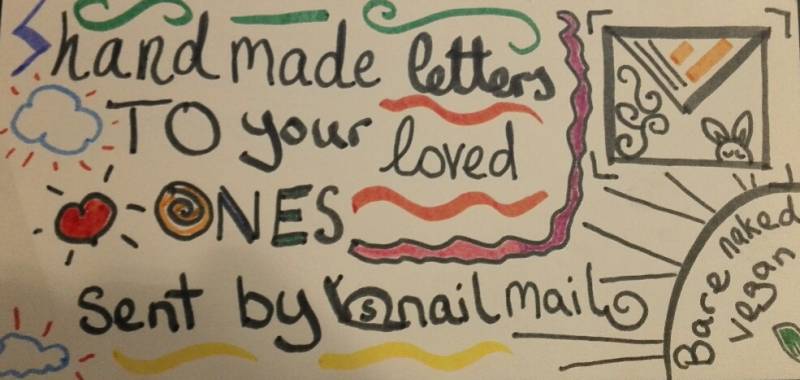 handmade letters
TO your loved
ONES
sent by snail mail
Bare naked
vegan